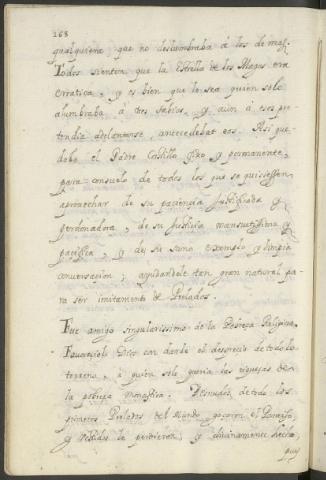 168
qualquiera que no deslumbraba à los demas.
Todos sienten que la Estrella de los Magos era
erratica, y es bien que lo sea quien solo
alumbraba à tres Sabios, y aun à esos pre-
tendia adelantarse, antecedebat eos. Asi que-
dobo el Padre Castillo fixo y permanente,
para consuelo de todos los que se quisiessen
aprovechar de su paciencia justificada y
perdonadora, de su Justicia mansuetissima y
pacifica, y de su sano exemplo y limpia
conversacion; ayudandole tan gran natural pa-
ra ser imitamento de Prelados.
Fue amigo singularissimo de la Pobreza Religiosa.
Favoreciole Dios con darle el desprecio de todo lo
terreno, à quien solo queria las riquezas de
la pobreza monastica. Desnudos de todo los
primeros Prelados del Mundo gozaron el Paraiso,
y vestidos le perdieron, y divinamente hecho,
pues